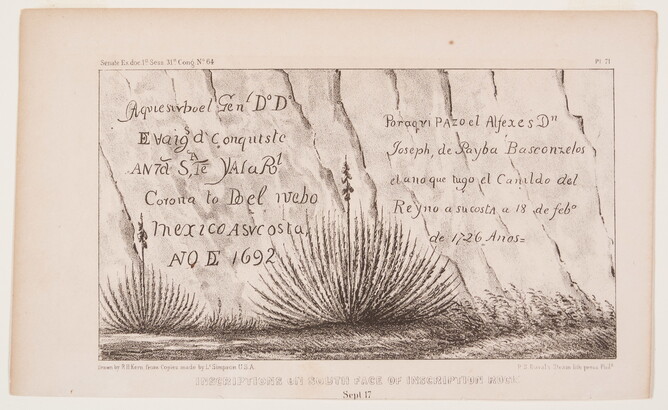 Senate Ex. doc. 1st Sess. 31st Cong. No 64
Pl. 71
Aqui estuboel Genl Do Do
E Vargs d Conquistc
ANTd STA Fe YAlaRl
Corona to Del Nvebo
Mexico ASVCosta,
AÑO DE 1692
Poraqui PAZO el Alferes Dn
Joseph, de Payba Basconzelos
el ano que tugo el Cauildo del
Reyno a su costa a 18 de febo
de 1726 Anos=
Drawn by R.H. Kern, from Copies made by Lt Simpson U.S.A.
P. S. Duval's Steam lith. press Philа
INSCRIPTIONS ON SOUTH FACE OF INSCRIPTION ROCK
Sept 17